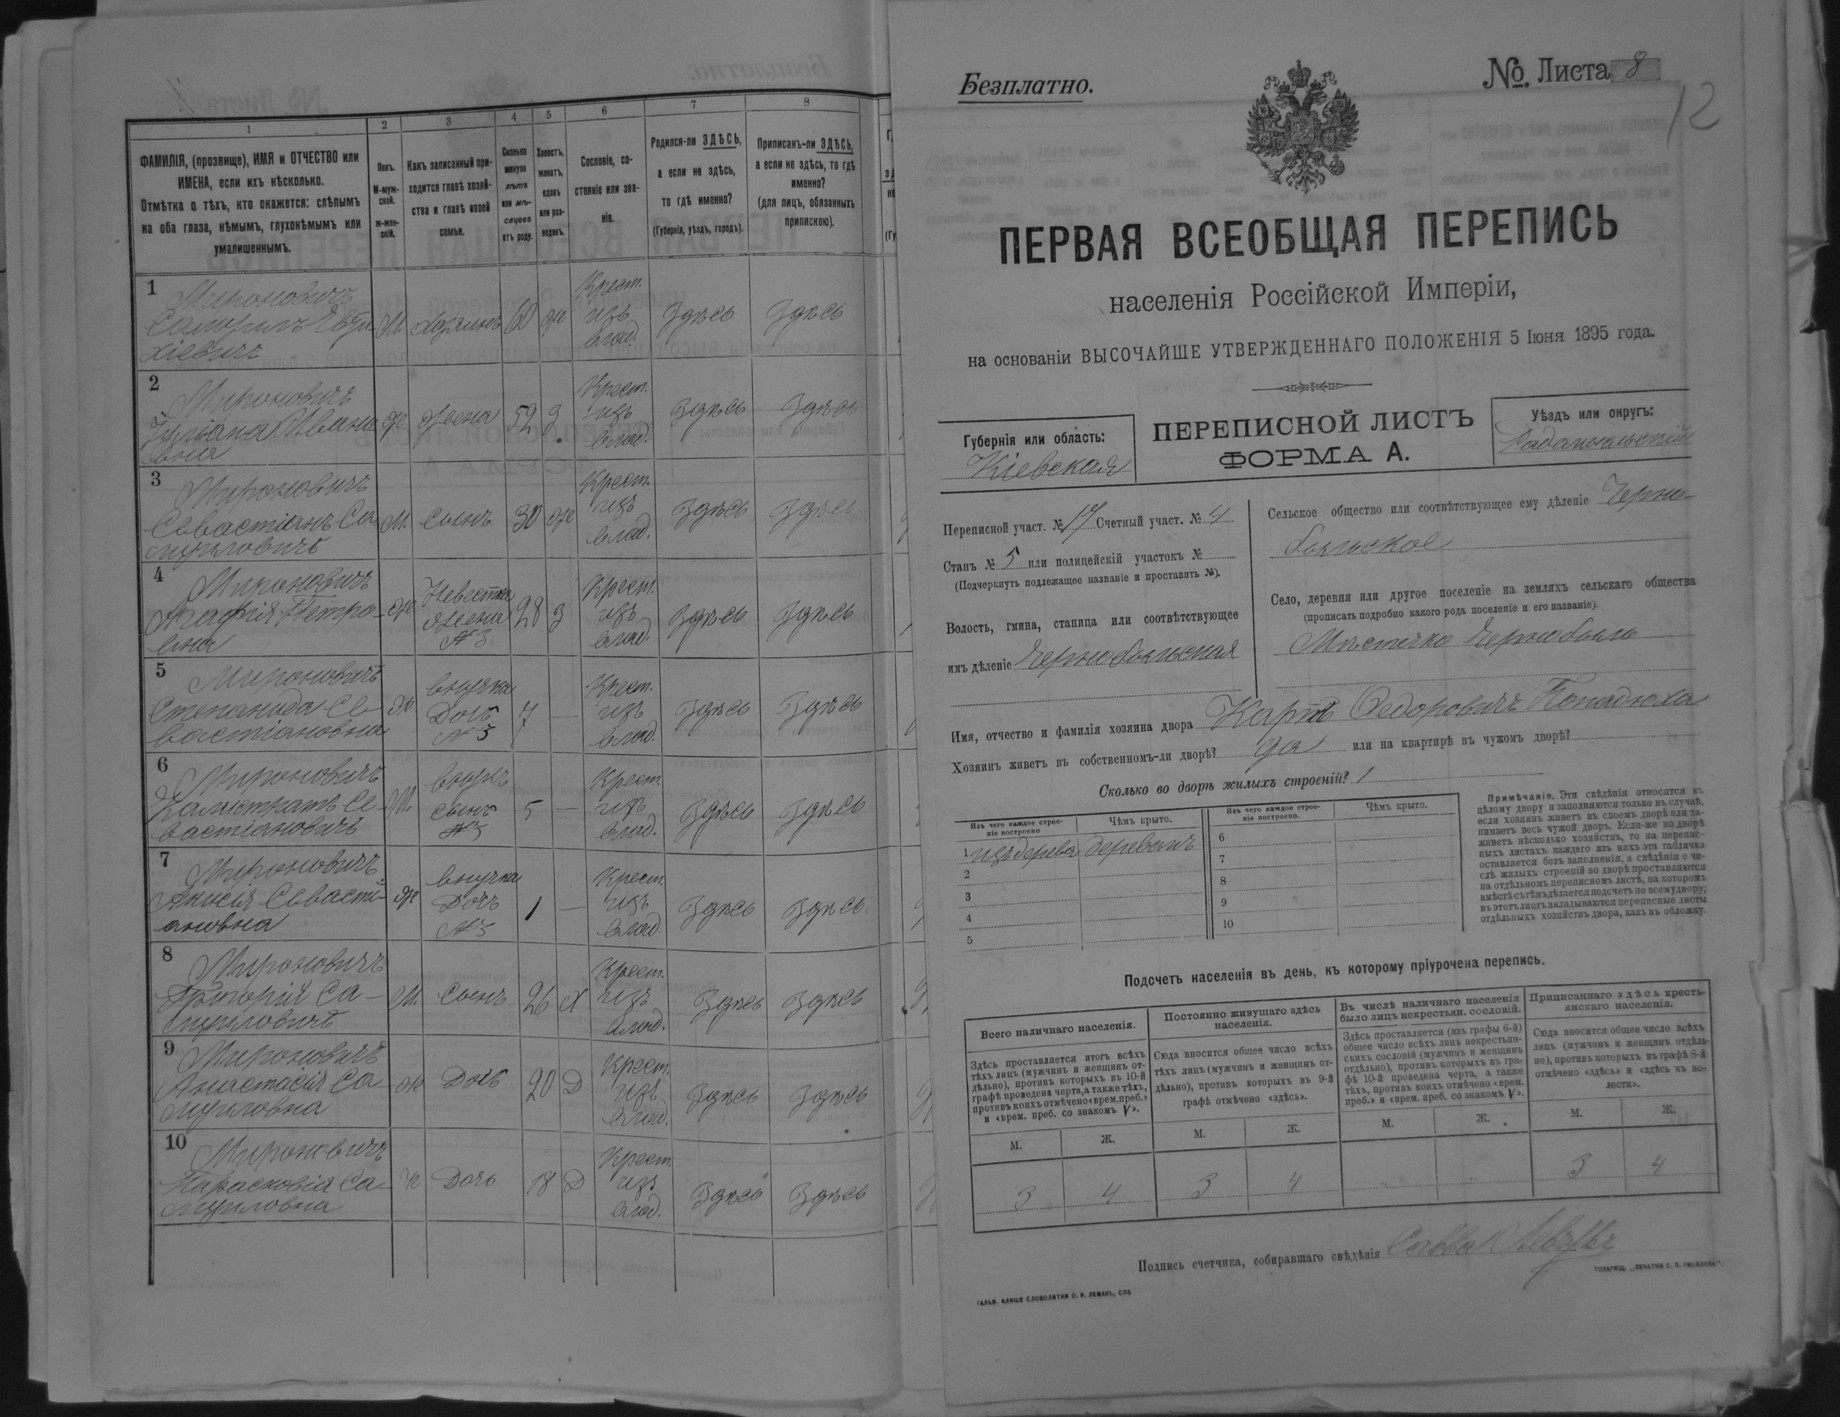 1
2
3
4
5
6
7
8
ФАМИЛІЯ, (прозвище), ИМЯ и ОТЧЕСТВО или
ИМЕНА, если ихъ нѣсколько.
Отмѣтка о тѣхъ, кто окажется: слѣпымъ
на оба глаза, нѣмымъ, глухонѣмымъ или
умалишеннымъ.
Полъ.
М-муж-
ской.
ж-жен-
скій.
Какъ записанный при-
ходится главѣ хозяй-
ства и главѣ своей
семьи.
Сколько
минуло
лѣтъ
или мѣ-
сяцевъ
отъ роду.
Холостъ,
женатъ,
вдовъ
или раз-
веденъ.
Сословіе, со-
стояніе или зва-
ніе.
Родился-ли ЗДѢСЬ,
а если не здѣсь,
то гдѣ именно?
(Губернія, уѣздъ, городъ).
Приписанъ-ли ЗДѢСЬ,
а если не здѣсь, то гдѣ
именно?
(для лицъ, обязанныхъ
припискою).
1
Мироновичъ
Самуилъ Евти- М хозяинъ 60 ж Крест. изъ влад. Здѣсь Здѣсь
хіевичъ
2
Мироновичъ
Ульяна Ивано- ж жена 52 з Крест. изъ влад. Здѣсь Здѣсь
вна
3
Мироновичъ
Севастіанъ Са- М. сынъ 30 ж Крест. изъ влад. Здѣсь Здѣсь
муиловичъ
4
Мироновичъ
Агафія Петро- ж Невестка жена №3 28 з Крест. изъ влад. Здѣсь Здѣсь
вна
5
Мироновичъ
Степанида Се- ж внучка Дочь №3 7 — Крест. изъ влад. Здѣсь Здѣсь
вастіановна
6
Мироновичъ
Калистратъ Се- М внукъ сынъ №3 5 — Крест. изъ влад. Здѣсь Здѣсь
вастіановичъ
7
Мироновичъ
Анисія Севасті- ж внучка Дочь №3 1 — Крест. изъ влад. Здѣсь Здѣсь
ановна
8
Мироновичъ
Григорій Са- М. сынъ 26 х Крест. изъ влад. Здѣсь Здѣсь
муиловичъ
9
Мироновичъ
Анастасія Са- ж Дочь 20 Д Крест. изъ влад. Здѣсь Здѣсь
муиловна
10
Мироновичъ
Парасковія Са- ж Дочь 18 Д Крест. изъ влад. Здѣсь Здѣсь
муиловна
Безплатно.
№. Листа 8
12
ПЕРВАЯ ВСЕОБЩАЯ ПЕРЕПИСЬ
населенія Россійской Имперіи,
на основаніи ВЫСОЧАЙШЕ УТВЕРЖДЕННАГО ПОЛОЖЕНІЯ 5 Іюня 1895 года.
Губернія или область:
Кіевская
ПЕРЕПИСНОЙ ЛИСТЪ
ФОРМА А.
Уѣздъ или округъ:
Радомысльскій
Переписной участ. № 17 Счетный участ. № 4
Станъ № 5 или полицейскій участокъ №
(Подчеркнуть подлежащее названіе и проставить №).
Волость, гмина, станица или соотвѣтствующее
имъ дѣленіе Чернобыльская
Сельское общество или соотвѣтствующее ему дѣленіе Черно-
быльское
Село, деревня или другое поселеніе на земляхъ сельскаго общества
(прописать подробно какого рода поселеніе и его названіе).
Мѣстечко Чернобыль
Имя, отчество и фамилія хозяина двора Карпъ Федоровичъ Попадюха
Хозяинъ живетъ въ собственномъ-ли дворѣ? да или на квартирѣ въ чужомъ дворѣ?
Сколько во дворѣ жилыхъ строеній? 1
Изъ чего каждое строе-
ніе построено
Чѣмъ крыто.
Изъ чего каждое строе-
ніе построено.
Чѣмъ крыто.
1 изъ дерева деревомъ
2
3
4
5
6
7
8
9
10
Примѣчаніе. Эти свѣдѣнія относятся къ
цѣлому двору и заполняются только въ случаѣ,
если хозяинъ живетъ въ своемъ дворѣ или за-
нимаетъ весь чужой дворъ. Если-же во дворѣ
живетъ нѣсколько хозяйствъ, то на перепис-
ныхъ листахъ каждаго изъ нихъ эта табличка
оставляется безъ заполненія, а свѣдѣнія о чи-
слѣ жилыхъ строеній во дворѣ проставляются
на отдѣльномъ переписномъ листѣ, на которомъ
вмѣстѣ съ тѣмъ дѣлается подсчетъ по всему двору;
въ этотъ листъ вкладываются переписные листы
отдѣльныхъ хозяйствъ двора, какъ въ обложку.
Подсчетъ населенія въ день, къ которому пріурочена перепись.
Всего наличнаго населенія.
Здѣсь проставляется итогъ всѣхъ
тѣхъ лицъ (мужчинъ и женщинъ от-
дѣльно), противъ которыхъ въ 10-й
графѣ проведена черта, а также тѣхъ,
противъ коихъ отмѣчено «врем. преб.»
и «врем. преб. со знакомъ V».
Постоянно живущаго здѣсь
населенія.
Сюда вносится общее число всѣхъ
тѣхъ лицъ (мужчинъ и женщинъ от-
дѣльно), противъ которыхъ въ 9-й
графѣ отмѣчено «здѣсь».
Въ числѣ наличнаго населенія
было лицъ некрестьян. сословій.
Здѣсь проставляется (изъ графы 6-й)
общее число всѣхъ лицъ некрестьян-
скихъ сословій (мужчинъ и женщинъ
отдѣльно), противъ которыхъ въ гра-
фѣ 10-й проведена черта, а также
тѣхъ, противъ коихъ отмѣчено «врем.
преб.» и «врем. преб. со знакомъ V».
Приписаннаго здѣсь кресть-
янскаго населенія.
Сюда вносится общее число всѣхъ
лицъ (мужчинъ и женщинъ отдѣль-
но), противъ которыхъ въ графѣ 8-й
отмѣчено «здѣсь» и «здѣсь къ во-
лости».
М. Ж. М. Ж. М. Ж. М. Ж.
3 4 3 4 " " 3 4
Подпись счетчика, собиравшаго свѣдѣнія Савва
ГАЛЬВ. КЛИШЕ СЛОВОЛИТНИ О. И. ЛЕМАНЪ, СПБ
ТОВАРИЩ. „ПЕЧАТНЯ С. П. ЯКОВЛЕВА".